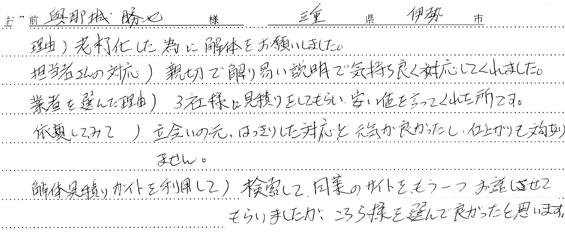 お名前 與那城 勝也 様 三重 県 伊勢 市
理由）老朽化した為に解体をお願いしました。
担当者さんの対応）親切で解り易い説明で気持ち良く対応してくれました。
業者を選んだ理由）3社様に見積りをしてもらい、安い値を言ってくれた所です。
依頼してみて）立会いの元、はっきりした対応と元気が良かったし、仕上がりも文句あり
ません。
解体見積りサイトを利用して）検索して、同業のサイトをもう一つお話しさせて
もらいましたが、こちら様を選んで良かったと思います